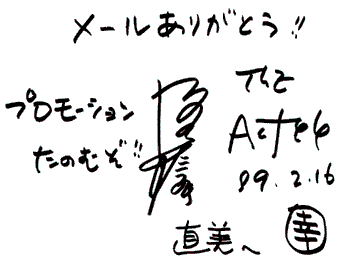 メールありがとう!!
プロモーション
たのむぞ!!
The
Actφ
99.2.16
直美へ
幸